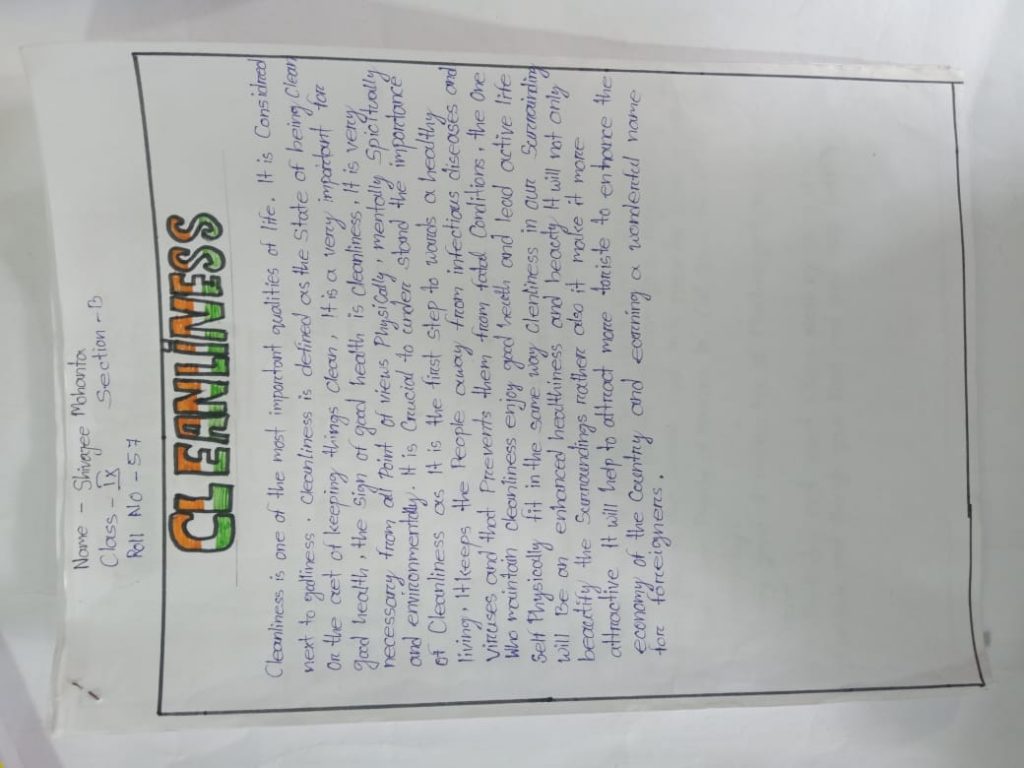 Name - Shivagee Mohanta
Class - IX Section - B
Roll NO - 57
CLEANLINESS
Cleanliness is one of the most important qualities of life. It is Considred
next to godliness. Cleanliness is defined as the State of being Clean
On the act of keeping things clean, It is a very important for
good health, the sign of good health is cleanliness, It is very
necessary from al Point of views Physically, mentally Spicitually
and environmentally. It is Crucial to under stand the importance
of Cleanliness as It is the first step to wards a healthy
living, It keeps the People away from infectious diseases and
Viruses and that Prevents them from fatal Conditions, the One
Who maintain cleanliness enjoy good heath and lead active life
Self Physically fit in the same way Clenliness in our Surrainding
will Be an enhanced healthiness and beauty It will not only
beautify the Surroundings rather also it make it more
attractive It will help to attract more toriste to enhance the
economy of the Country and earning a wonderful name
for forceigners.